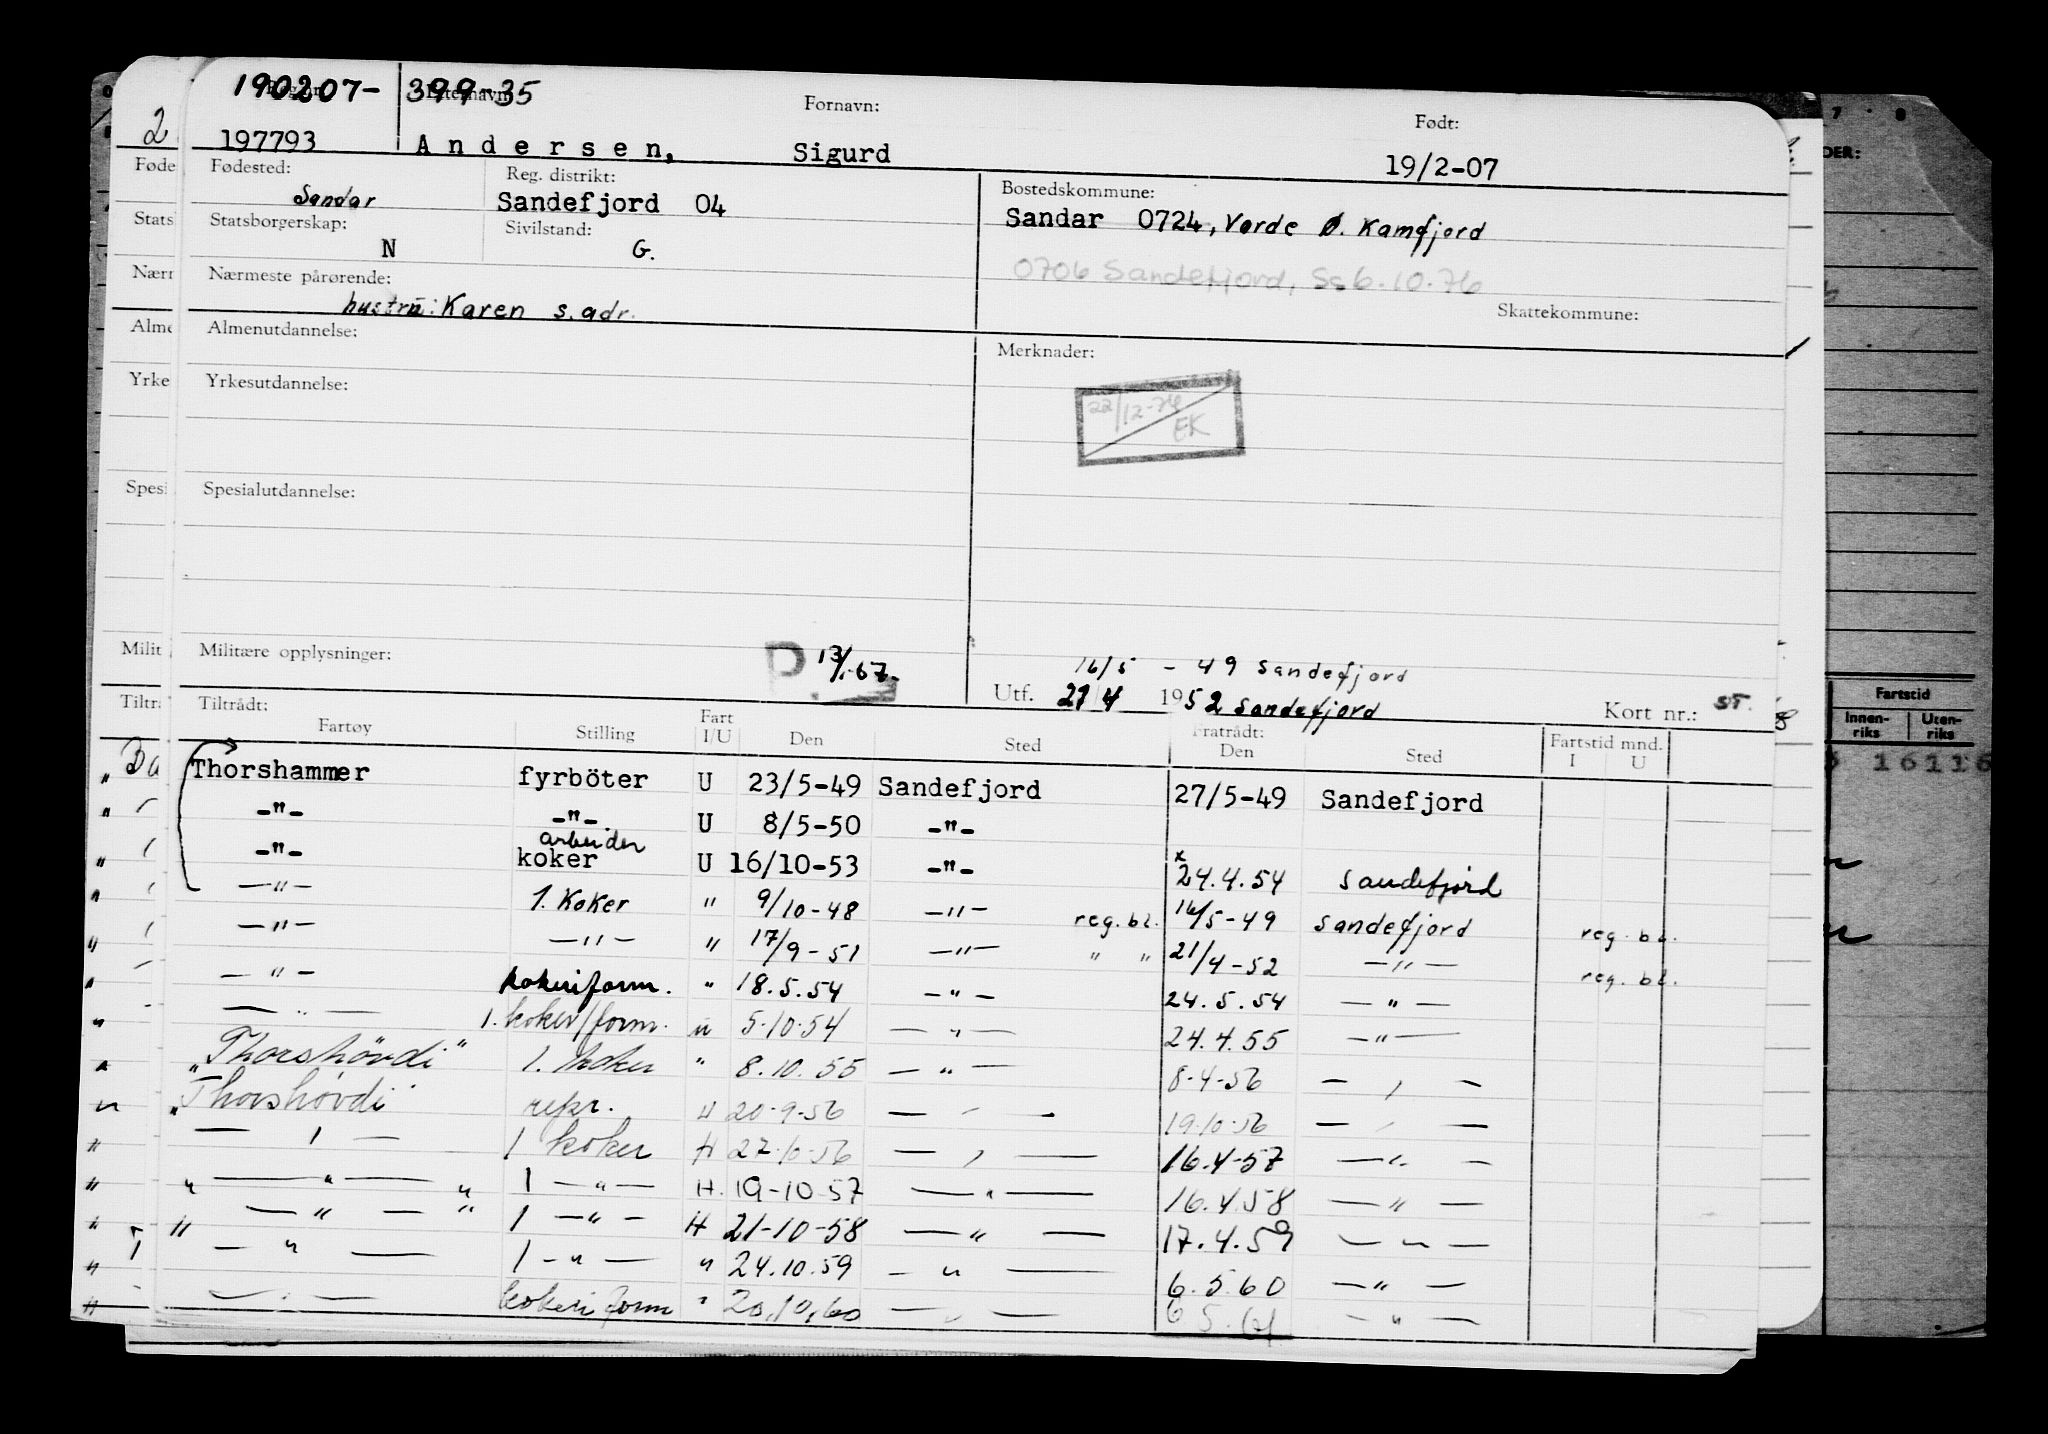 190207- 399-35
197793 Andersen, Fornavn: Sigurd Født: 19/2-07
2
Føde Fødested: Sandar Reg. distrikt: Sandefjord 04 Bostedskommune: Sandar 0724, Vorde Ø. Kamfjord
Stats Statsborgerskap: N Sivilstand: G. 0706 Sandefjord, Ss 6.10.76
Nærm Nærmeste pårørende: hustru: Karen s. adr. Skattekommune:
Alme Almenutdannelse: Merknader:
Yrke Yrkesutdannelse: 22/12-76 EK
Spesi Spesialutdannelse:
Milit Militære opplysninger: P. 13/1-67- 16/5 - 49 Sandefjord
Utf. 21/4 1952 Sandefjord Kort nr.:
Tiltr Tiltrådt: Fratrådt: Fartstid mnd.
Fartøy Stilling Fart I/U Den Sted Den Sted I U
Fartstid
Innen-riks Uten-riks
16116
Thorshammer fyrböter U 23/5-49 Sandefjord 27/5-49 Sandefjord
-"- -"- U 8/5-50 -"-
-"- arbeider koker U 16/10-53 -"- x 24.4.54 Sandefjord
-"- 1. Koker " 9/10-48 -"- reg. bl. 16/5-49 Sandefjord reg. bl.
-"- -"- " 17/9-51 -"- " " 21/4-52 -"- reg. bl.
-"- kokeriform. " 18.5.54 -"- 24.5.54 -"-
-"- 1. koker/form. " 5.10.54 -"- 24.4.55 -"-
"Thorshövdi" 1. koker " 8.10.55 -"- 8-4-56 -"-
"Thorshövdi" repr. H 20-9-56 -"- 19.10.56 -"-
-"- 1 koker H 27-10-56 -"- 16.4-57 -"-
"-"-" 1 -"- H. 19-10 57 -"- 16.4.58 -"-
"-"-" 1 -"- H 21-10-58 -"- 17.4.59 -"-
-"- 1 -"- " 24.10.59 -"- 6.5.60 -"-
-"- kokeri form " 20.10.60 -"- 6 5.61 -"-